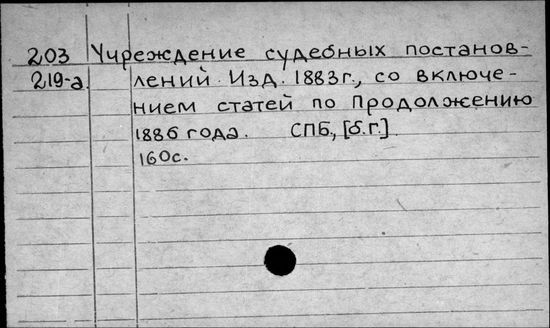 203 Учреждение судебных постанов-
219-а. лений. Изд. 1883г., со включе-
нием статей по Продолжению
1886 года. СПБ., [б.г.].
160с.